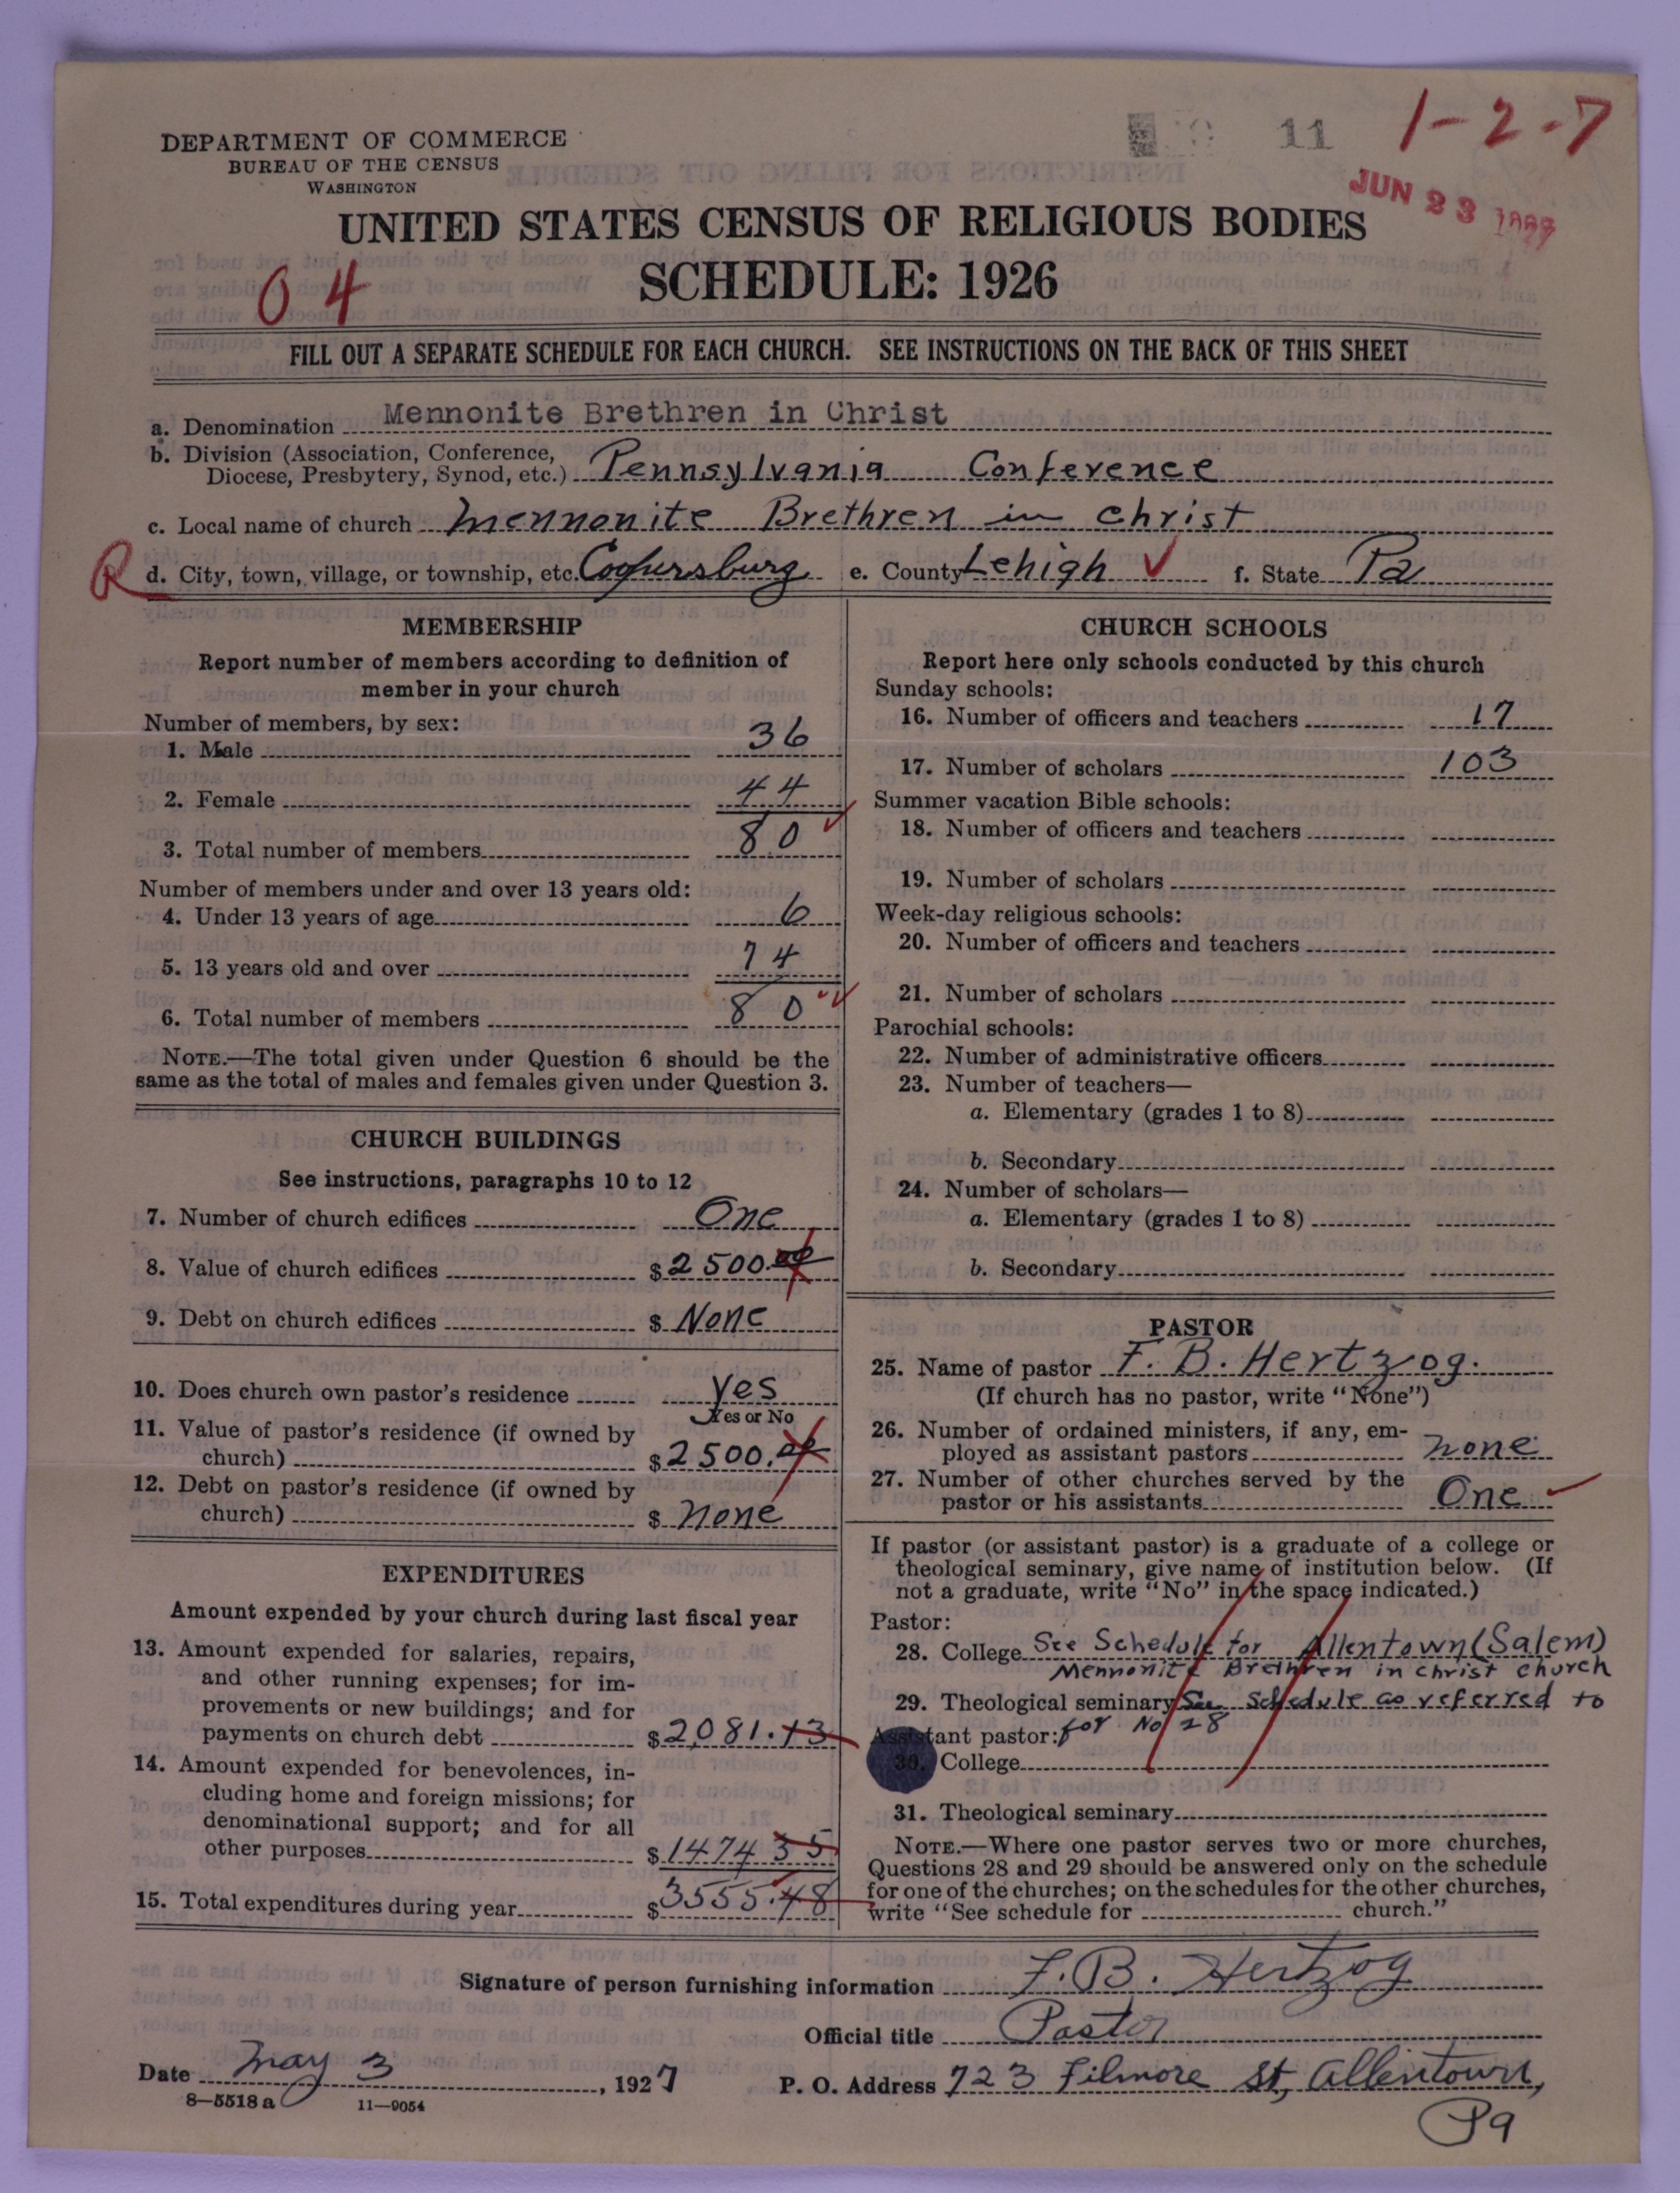 DEPARTMENT OF COMMERCE
BUREAU OF THE CENSUS
WASHINGTON
11
1-2-7
JUN 23
UNITED STATES CENSUS OF RELIGIOUS BODIES
SCHEDULE: 1926
04
FILL OUT A SEPARATE SCHEDULE FOR EACH CHURCH. SEE INSTRUCTIONS ON THE BACK OF THIS SHEET
a. Denomination Mennonite Brethren in Christ
b. Division (Association, Conference,
Diocese, Presbytery, Synod, etc.) Pennsylvania Conference
c. Local name of church Mennonite Brethren in Christ
R d. City, town, village, or township, etc. e. County Lehigh ✓ f. State Pa
MEMBERSHIP
Report number of members according to definition of
member in your church
Number of members, by sex:
1. Male 36
2. Female 44
3. Total number of members 80
Number of members under and over 13 years old:
4. Under 13 years of age 6
5. 13 years old and over 74
6. Total number of members 80
NOTE.—The total given under Question 6 should be the
same as the total of males and females given under Question 3.
CHURCH BUILDINGS
See instructions, paragraphs 10 to 12
7. Number of church edifices One
8. Value of church edifices $2500.00
9. Debt on church edifices $ None
10. Does church own pastor's residence Yes
Yes or No
11. Value of pastor's residence (if owned by
church) $2500.00
12. Debt on pastor's residence (if owned by
church) $ None
EXPENDITURES
Amount expended by your church during last fiscal year
13. Amount expended for salaries, repairs,
and other running expenses; for im-
provements or new buildings; and for
payments on church debt $2081.13
14. Amount expended for benevolences, in-
cluding home and foreign missions; for
denominational support; and for all
other purposes $1474 35
15. Total expenditures during year $3555.48
CHURCH SCHOOLS
Report here only schools conducted by this church
Sunday schools:
16. Number of officers and teachers 17
17. Number of scholars 103
Summer vacation Bible schools:
18. Number of officers and teachers
19. Number of scholars
Week-day religious schools:
20. Number of officers and teachers
21. Number of scholars
Parochial schools:
22. Number of administrative officers
23. Number of teachers—
a. Elementary (grades 1 to 8)
b. Secondary
24. Number of scholars—
a. Elementary (grades 1 to 8)
b. Secondary
PASTOR
25. Name of pastor F. B. Hertzog.
(If church has no pastor, write "None")
26. Number of ordained ministers, if any, em-
ployed as assistant pastors none
27. Number of other churches served by the
pastor or his assistants One
If pastor (or assistant pastor) is a graduate of a college or
theological seminary, give name of institution below. (If
not a graduate, write "No" in the space indicated.)
Pastor:
28. College See Schedule for Allentown (Salem)
Mennonite Brethren in Christ Church
29. Theological seminary See Schedule as referred to
Assistant pastor: for No 28
30. College
31. Theological seminary
NOTE.—Where one pastor serves two or more churches,
Questions 28 and 29 should be answered only on the schedule
for one of the churches; on the schedules for the other churches,
write "See schedule for church."
Signature of person furnishing information F. B. Hertzog
Official title Pastor
Date May 3, 1927 P. O. Address 723 Filmore St, Allentown,
Pa
8—5518 a 11—9054